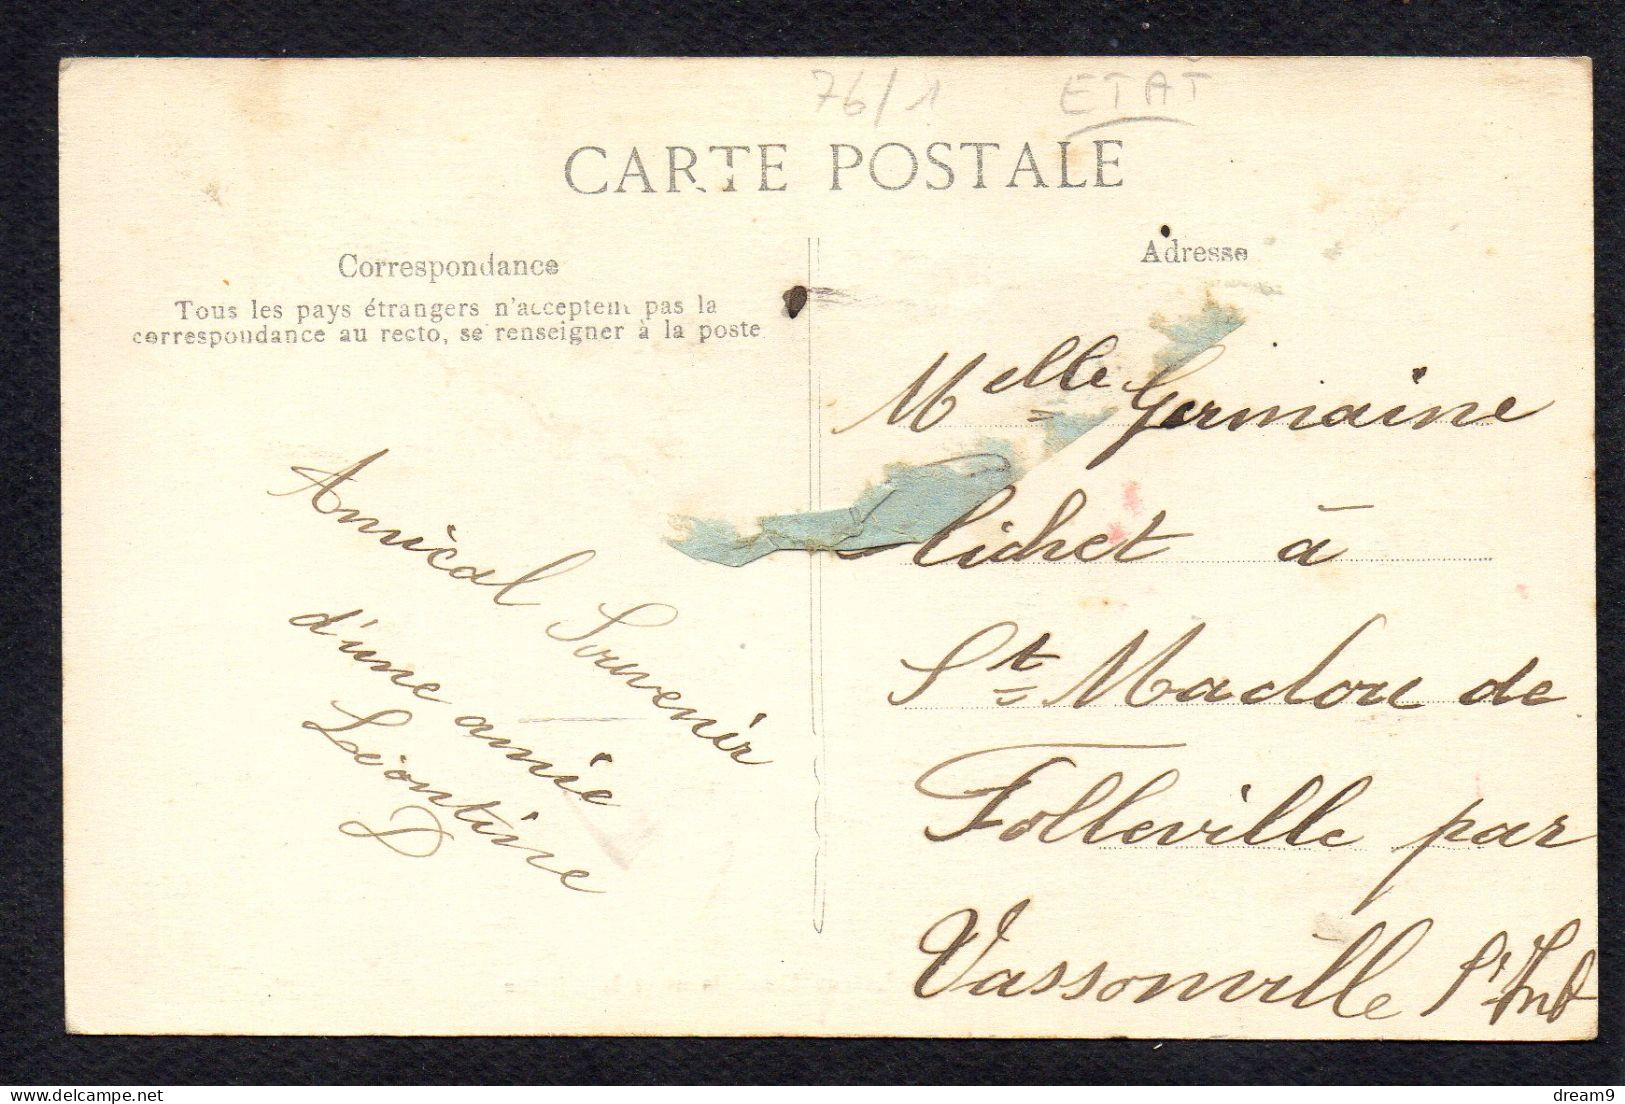 76/1 ETAT
CARTE POSTALE
Correspondance
Tous les pays étrangers n'acceptent pas la
correspondance au recto, se renseigner à la poste
Amical Souvenir
d'une amie
Léontine
D
Adresse
Melle Germaine
lichet à
St Maclou de
Folleville par
Vassonville St Inf
dream9